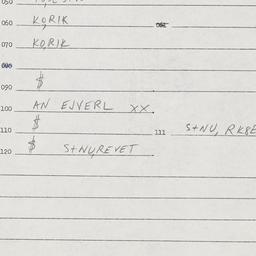 050
060 KO,RIK
070 KO,RIK
$
090
100 AN EJVERL XX.
$
110 111 S+NU, RK8E
120 $ S+NU,REVET